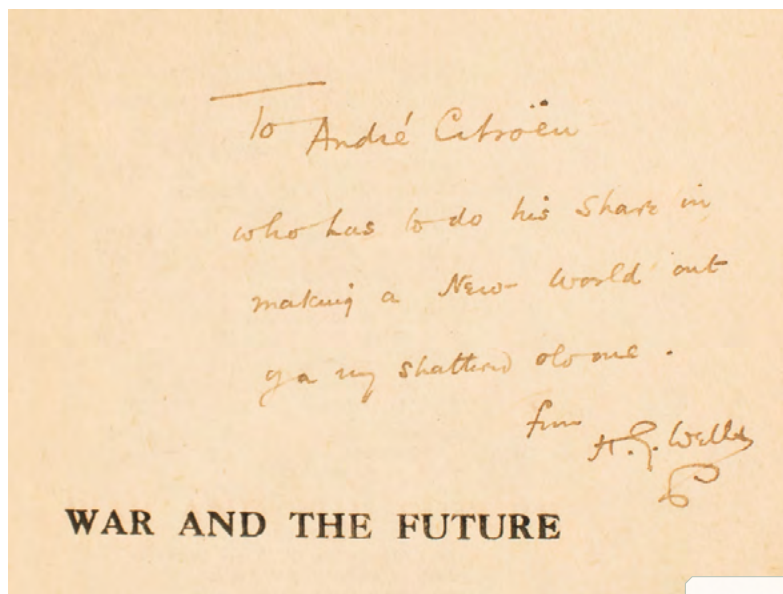 To André Citroën
who has to do his share in
making a New World out
of a shattered old one.
from H. G. Wells
WAR AND THE FUTURE